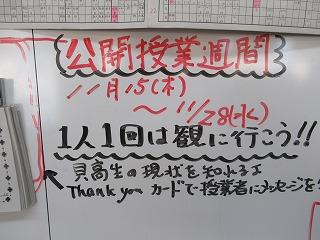 公開授業週間
11月15(木)
～11/28(水)
1人1回は観に行こう!!
貝高生の現状を知れるよ
Thank you カードで授業者にメッセージを!